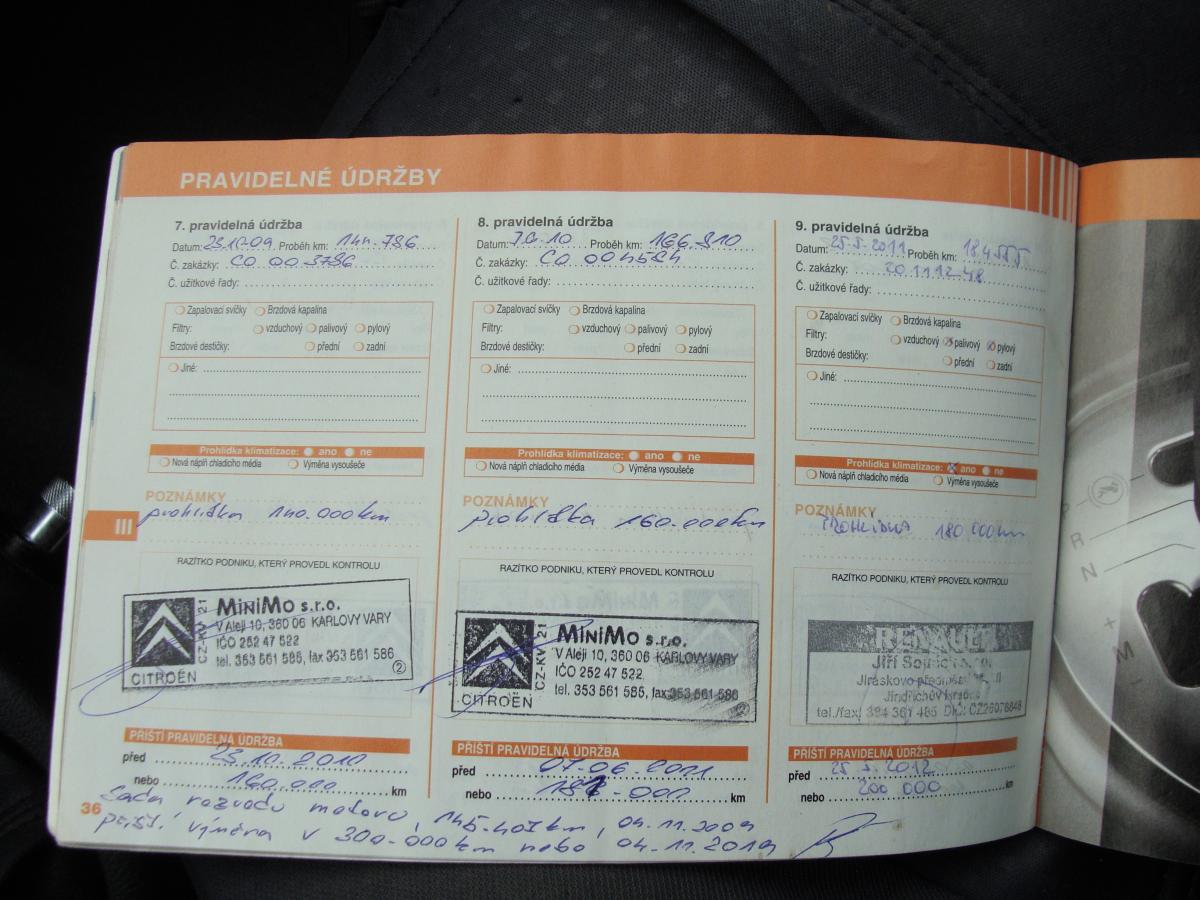 PRAVIDELNÉ ÚDRŽBY
7. pravidelná údržba
Datum: 23.10.09 Proběh km: 144.786
Č. zakázky: CO 003786
Č. užitkové řady:
Zapalovací svíčky Brzdová kapalina
Filtry: vzduchový palivový pylový
Brzdové destičky: přední zadní
Jiné:
Prohlídka klimatizace: ano ne
Nová náplň chladicího média Výměna vysoušeče
POZNÁMKY
prohlídka 140.000km
RAZÍTKO PODNIKU, KTERÝ PROVEDL KONTROLU
MiniMo s.r.o.
V Aleji 10, 360 06 KARLOVY VARY
IČO 252 47 522
tel. 353 561 585, fax 353 561 586
CZ-KV 21
2
CITROËN
PŘÍŠTÍ PRAVIDELNÁ ÚDRŽBA
před 23.10.2010
nebo 160.000 km
8. pravidelná údržba
Datum: 7.6.10 Proběh km: 166.910
Č. zakázky: CO 004584
Č. užitkové řady:
Zapalovací svíčky Brzdová kapalina
Filtry: vzduchový palivový pylový
Brzdové destičky: přední zadní
Jiné:
Prohlídka klimatizace: ano ne
Nová náplň chladicího média Výměna vysoušeče
POZNÁMKY
prohlídka 160.000km
RAZÍTKO PODNIKU, KTERÝ PROVEDL KONTROLU
MiniMo s.r.o.
V Aleji 10, 360 06 KARLOVY VARY
IČO 252 47 522
tel. 353 561 585, fax 353 561 586
CZ-KV 21
2
CITROËN
PŘÍŠTÍ PRAVIDELNÁ ÚDRŽBA
před 07.06.2011
nebo 187.000 km
9. pravidelná údržba
Datum: 25.5.2011 Proběh km: 184555
Č. zakázky: 20111248
Č. užitkové řady:
Zapalovací svíčky Brzdová kapalina
Filtry: vzduchový palivový pylový
Brzdové destičky: přední zadní
Jiné:
Prohlídka klimatizace: ano ne
Nová náplň chladicího média Výměna vysoušeče
POZNÁMKY
PROHLÍDKA 180 000km
RAZÍTKO PODNIKU, KTERÝ PROVEDL KONTROLU
RENAULT
Jiří
Jiráskovo II
Jindřichův Hradec
tel./fax: 384 361 485, DIČ: CZ26076848
PŘÍŠTÍ PRAVIDELNÁ ÚDRŽBA
před 25.5.2012
nebo 200 000 km
III
36
Sada rozvodu motoru, 145.407km, 04.11.2009
příští výměna v 300.000km nebo 04.11.2019
P
R
N
+
M
-